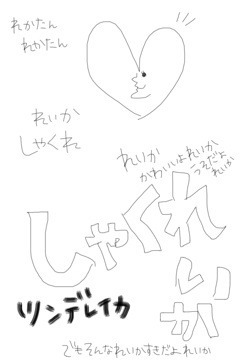 れかたん
れかたん
れいか
しゃくれ
れいか
かわいいよれいか
うそだよ
れいか
しゃくれ
いか
ツンデレイカ
でもそんなれいかすきだよれいか